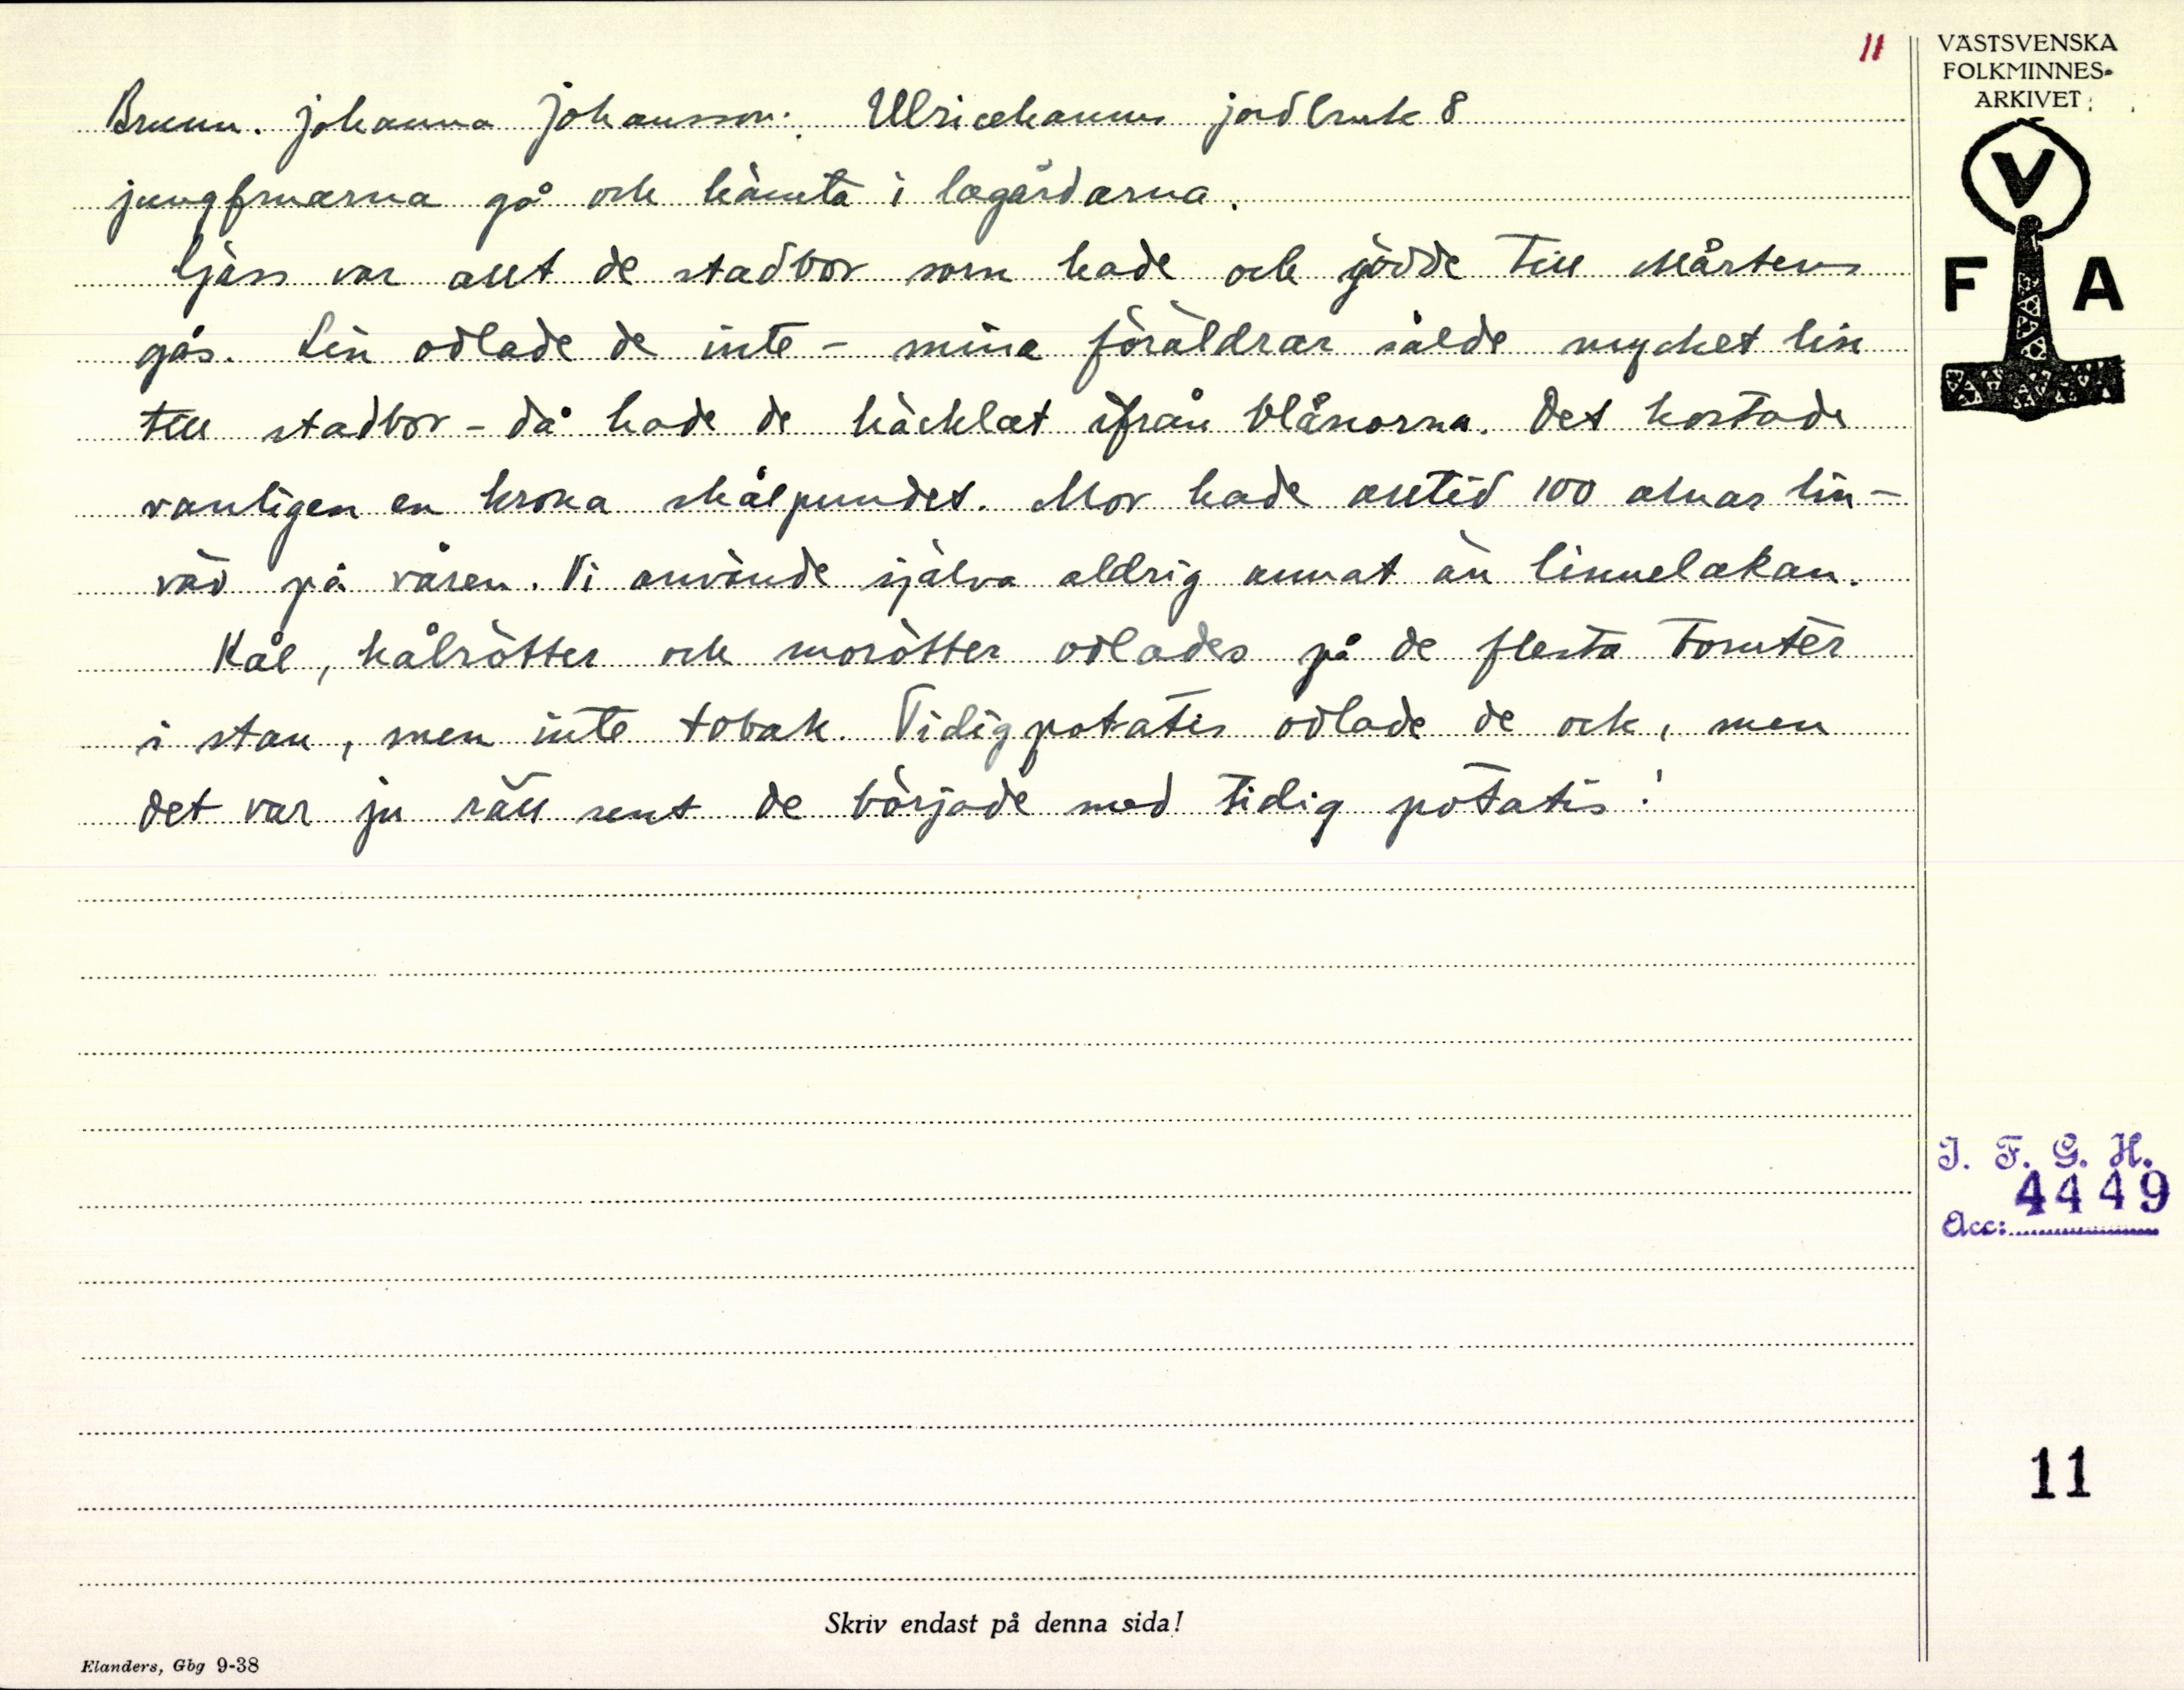 11
VÄSTSVENSKA
FOLKMINNES-
ARKIVET
Brunn. Johanna Johansson. Ulricehamns jordbruk 8
jungfruarna gå och hämta i lagårdarna.
Gäss var allt de stadbor som hade och gödde till Mårtens
gås. Lin odlade de inte – mina föräldrar sålde mycket lin
till stadbor – då hade de häcklat ifrån blånorna. Det kostade
vanligen en krona skålpundet. Mor hade alltid 100 alnar lin-
väv på våren. Vi använde själva aldrig annat än linnelakan.
Kål, kålrötter och morötter odlades på de flesta tomter
i stan, men inte tobak. Tidigpotatis odlade de ock, men
det var ju rätt sent de började med tidig potatis!
V
F A
I. F. G. H.
4449
Acc:
11
Skriv endast på denna sida!
Elanders, Gbg 9-38